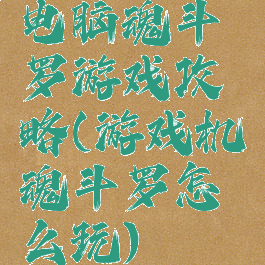 电脑魂斗
罗游戏攻
略(游戏机
魂斗罗怎
么玩)